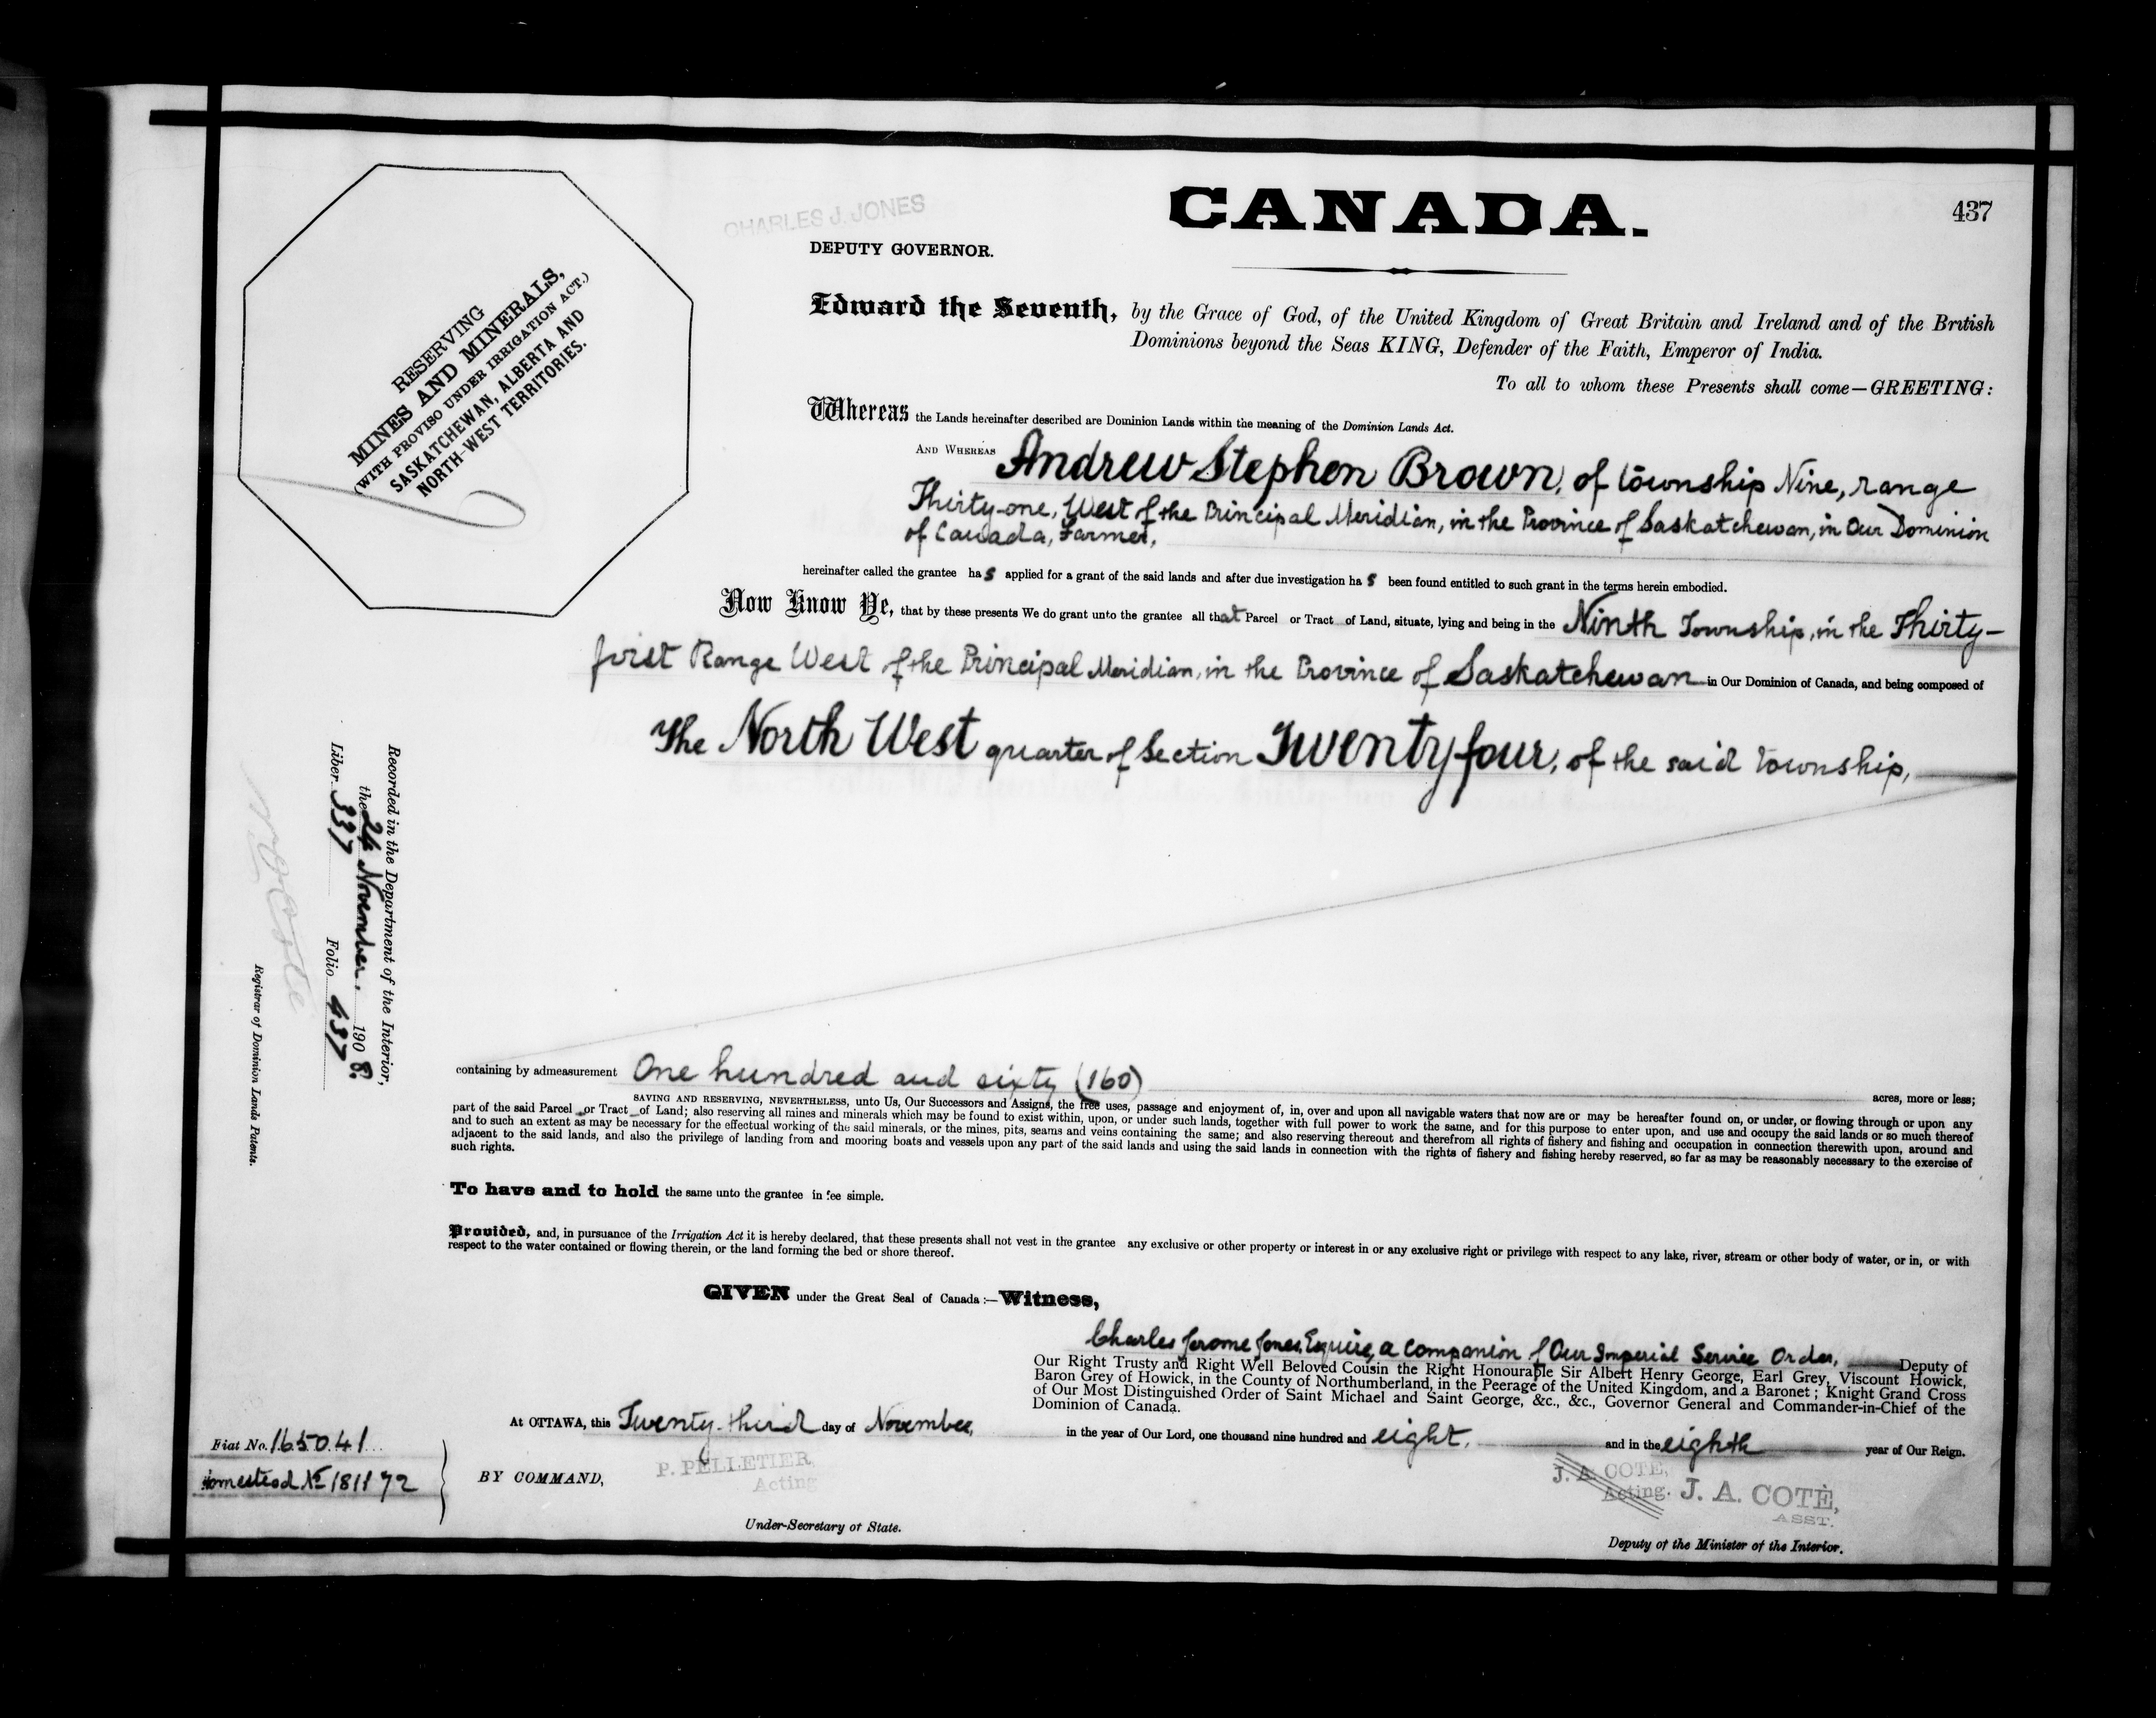 CANADA.
437
CHARLES J. JONES
DEPUTY GOVERNOR.
RESERVING
MINES AND MINERALS,
(WITH PROVISO UNDER IRRIGATION ACT.)
SASKATCHEWAN, ALBERTA AND
NORTH-WEST TERRITORIES.
Edward the Seventh, by the Grace of God, of the United Kingdom of Great Britain and Ireland and of the British
Dominions beyond the Seas KING, Defender of the Faith, Emperor of India.
To all to whom these Presents shall come—GREETING:
Whereas the Lands hereinafter described are Dominion Lands within the meaning of the Dominion Lands Act.
AND WHEREAS Andrew Stephen Brown, of township Nine, range
Thirty-one, West of the Principal Meridian, in the Province of Saskatchewan, in Our Dominion
of Canada, Farmer,
hereinafter called the grantee has applied for a grant of the said lands and after due investigation has been found entitled to such grant in the terms herein embodied.
Now Know Ye, that by these presents We do grant unto the grantee all that Parcel or Tract of Land, situate, lying and being in the Ninth Township, in the Thirty-
first Range West of the Principal Meridian, in the Province of Saskatchewan in Our Dominion of Canada, and being composed of
The North West quarter of Section Twenty four, of the said township,
Recorded in the Department of the Interior,
the 24 November, 1908.
Liber 337 Folio 437
Registrar of Dominion Lands Patents.
containing by admeasurement One hundred and sixty (160) acres, more or less;
SAVING AND RESERVING, NEVERTHELESS, unto Us, Our Successors and Assigns, the free uses, passage and enjoyment of, in, over and upon all navigable waters that now are or may be hereafter found on, or under, or flowing through or upon any
part of the said Parcel or Tract of Land; also reserving all mines and minerals which may be found to exist within, upon, or under such lands, together with full power to work the same, and for this purpose to enter upon, and use and occupy the said lands or so much thereof
and to such an extent as may be necessary for the effectual working of the said minerals, or the mines, pits, seams and veins containing the same; and also reserving thereout and therefrom all rights of fishery and fishing and occupation in connection therewith upon, around and
adjacent to the said lands, and also the privilege of landing from and mooring boats and vessels upon any part of the said lands and using the said lands in connection with the rights of fishery and fishing hereby reserved, so far as may be reasonably necessary to the exercise of
such rights.
To have and to hold the same unto the grantee in fee simple.
Provided, and, in pursuance of the Irrigation Act it is hereby declared, that these presents shall not vest in the grantee any exclusive or other property or interest in or any exclusive right or privilege with respect to any lake, river, stream or other body of water, or in, or with
respect to the water contained or flowing therein, or the land forming the bed or shore thereof.
GIVEN under the Great Seal of Canada :—Witness,
Charles Jerome Jones, Esquire, a Companion of Our Imperial Service Order, Deputy of
Our Right Trusty and Right Well Beloved Cousin the Right Honourable Sir Albert Henry George, Earl Grey, Viscount Howick,
Baron Grey of Howick, in the County of Northumberland, in the Peerage of the United Kingdom, and a Baronet; Knight Grand Cross
of Our Most Distinguished Order of Saint Michael and Saint George, &c., &c., Governor General and Commander-in-Chief of the
Dominion of Canada.
At OTTAWA, this Twenty-third day of November, in the year of Our Lord, one thousand nine hundred and eight, and in the eighth year of Our Reign.
Fiat No. 165041
Homestead No 181172
BY COMMAND,
P. PELLETIER,
Acting
Under-Secretary of State.
J. A. COTE,
Acting.
J. A. COTÈ,
ASST.
Deputy of the Minister of the Interior.